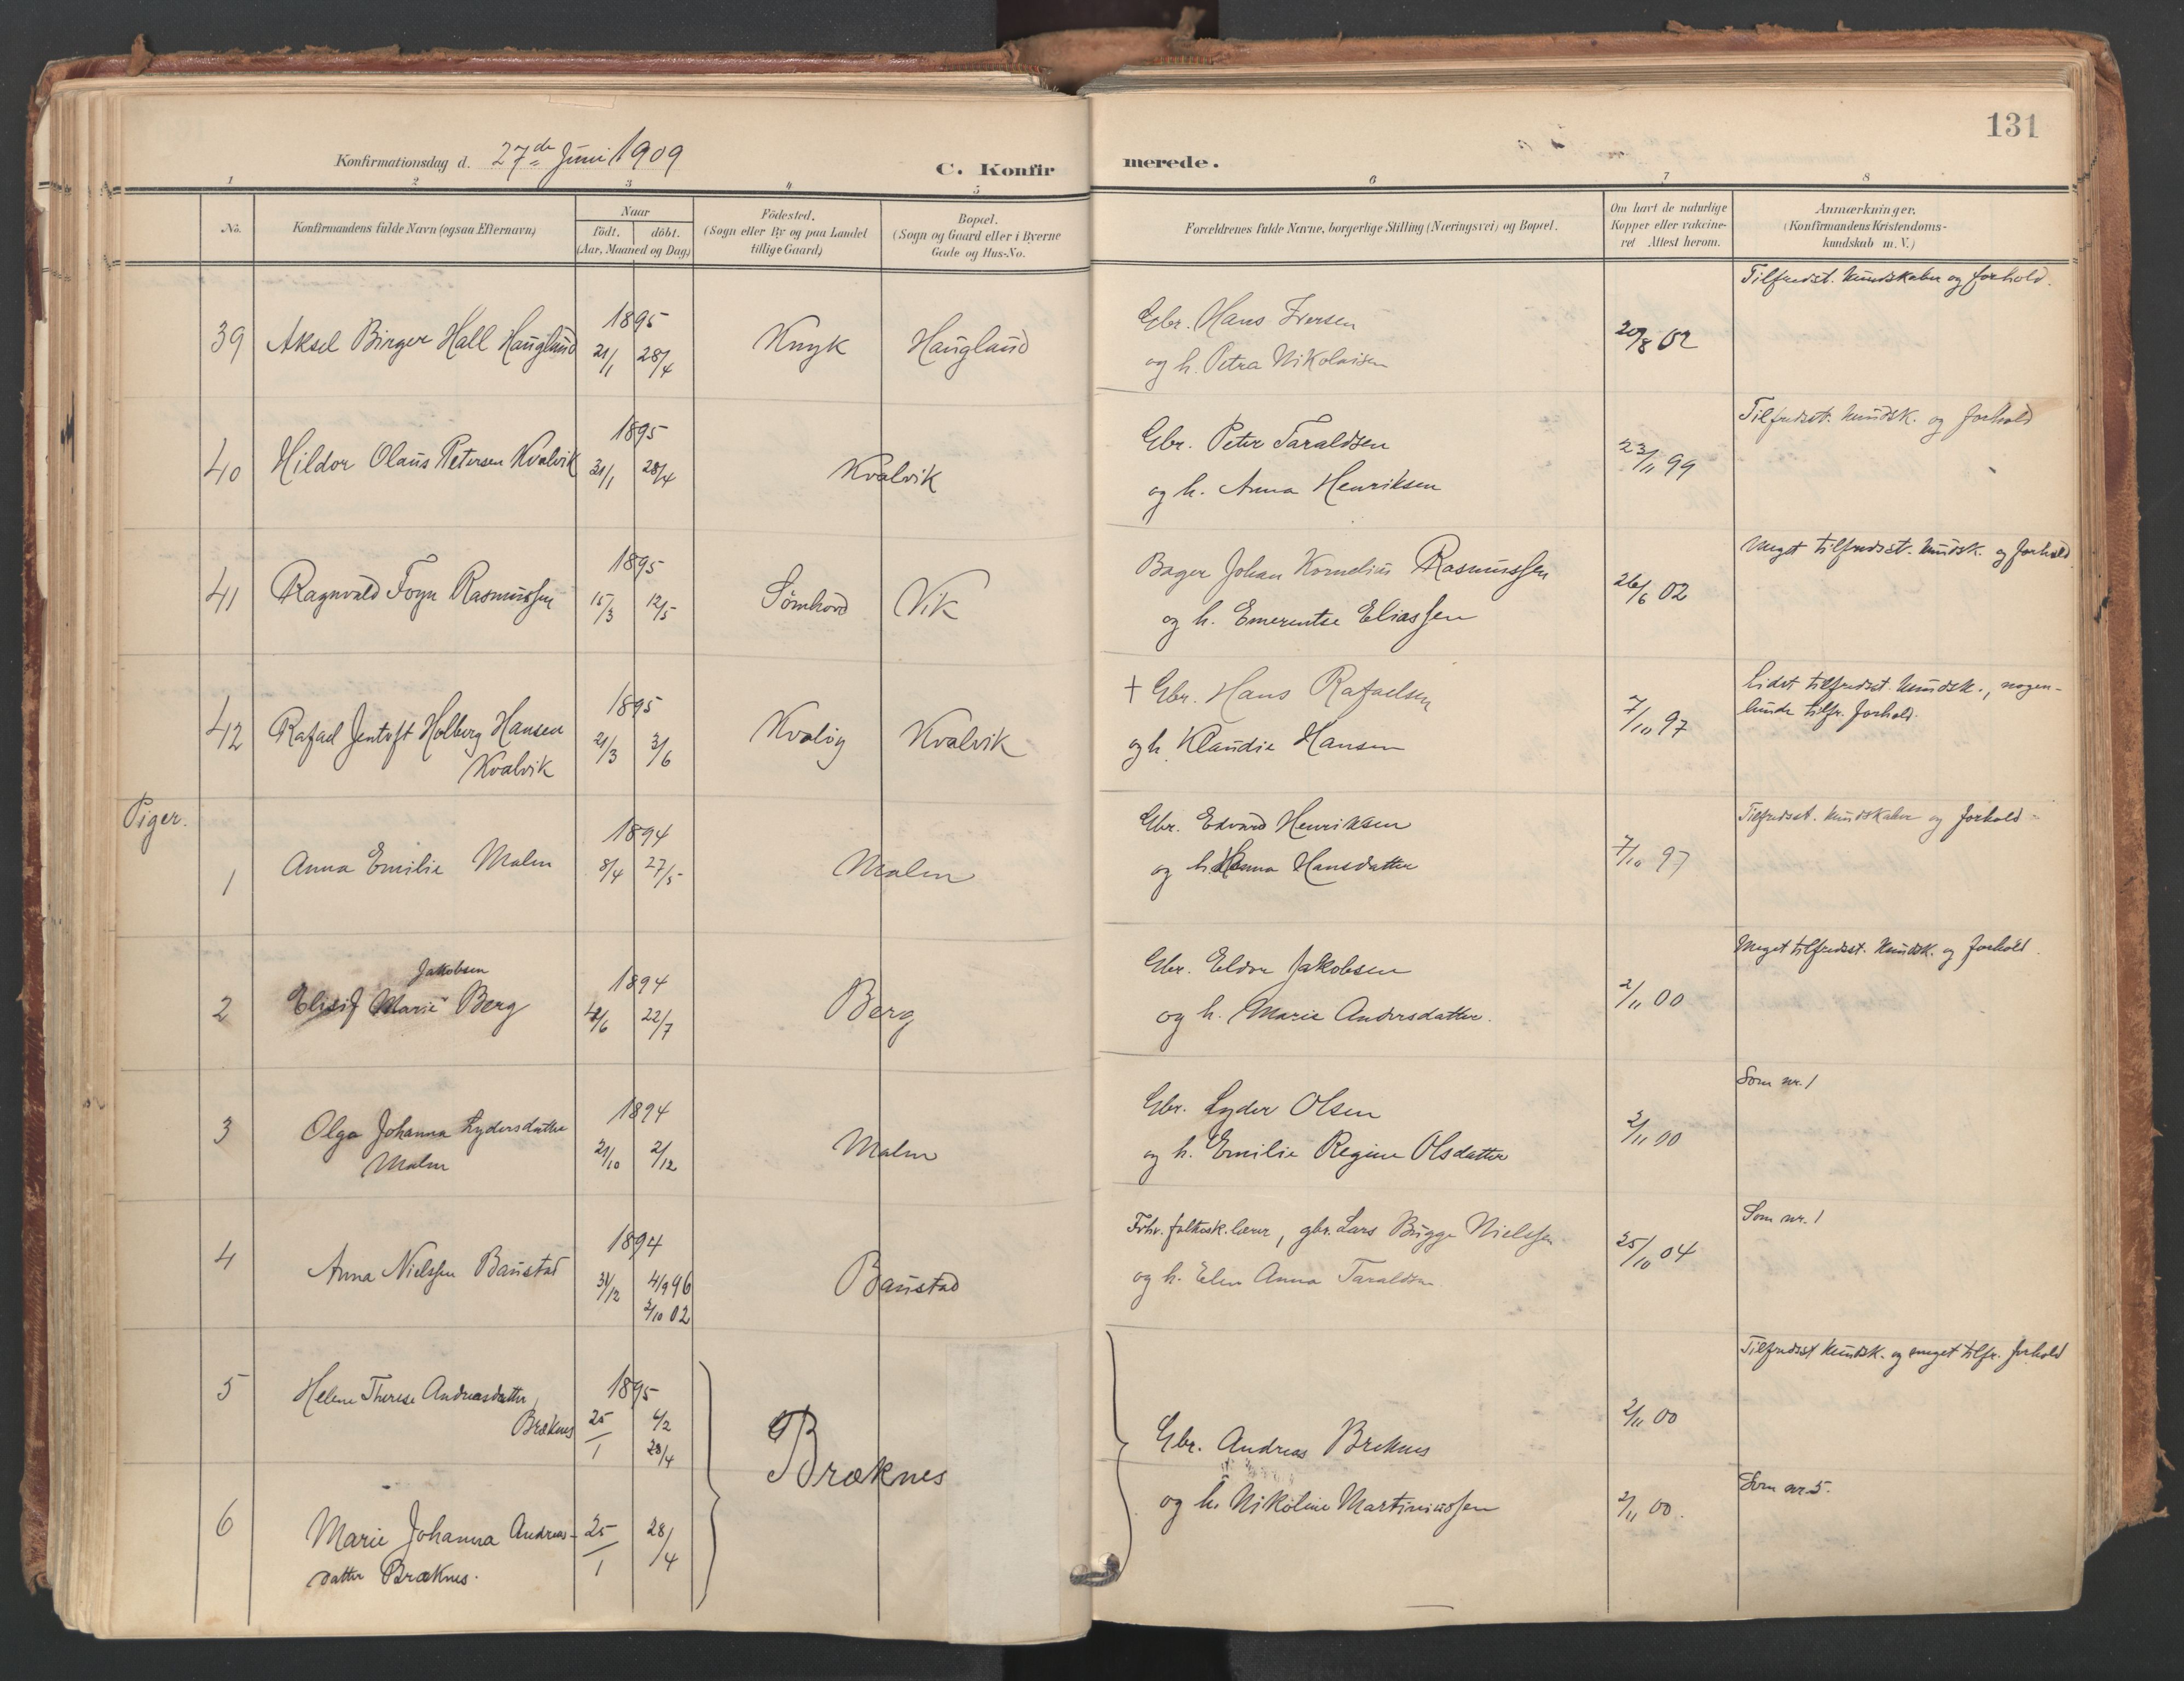 131
Konfirmationsdag d. 27de Juni 1909
C. Konfirmerede.
1 2 3 4 5 6 7 8
No.
Konfirmandens fulde Navn (ogsaa Efternavn)
Naar
födt. döbt.
(Aar, Maaned og Dag)
Födested.
(Sogn eller By og paa Landet
tillige Gaard)
Bopæl.
(Sogn og Gaard eller i Byerne
Gade og Hus-No.
Forældrenes fulde Navne, borgerlige Stilling (Næringsvei) og Bopæl.
Om havt de naturlige
Kopper eller vakcine-
ret Attest herom.
Anmærkninger.
(Konfirmandens Kristendoms-
kundskab m. V.)
Tilfredst. kundskaber og forhold.
39 Aksel Birger Hall Haugland 1895 21/1 28/4 Knyk Haugland
Gbr. Hans Iversen
og h. Petra Nikolaisen
20/8 02
Tilfredst. kundsk. og forhold
40 Hildor Olaus Petersen Kvalvik 1895 31/1 28/4 Kvalvik
Gbr. Peter Taraldsen
og h. Anna Henriksen
23/11 99
Meget tilfredsst. kundsk. og forhold
41 Ragnvald Foyn Rasmussen 1895 15/3 12/5 Sömhovd Vik
Bager Johan Kornelius Rasmussen
og h. Emerentse Eliassen
26/6 02
Lidet tilfredsst. kundsk., nogen-
lunde tilfr. forhold.
42 Rafael Jentoft Holberg Hansen
Kvalvik
1895 21/3 3/6 Kvalöy Kvalvik
† Gbr. Hans Rafaelsen
og h. Klaudie Hansen
7/10 97
Piger.
Tilfredsst. kundskaber og forhold
1 Anna Emilie Malm 1894 8/4 27/5 Malm
Gbr. Edvard Henriksen
og h. Hanna Hansdatter
7/10 97
Meget tilfredsst. kundsk. og forhold.
Jakobsen
2 Elisif Marie Berg 1894 4/6 22/7 Berg
Gbr. Eldor Jakobsen
og h. Marie Andersdatter.
2/11 00
Som nr. 1
3 Olga Johanna Lydersdatter
Malm
1894 21/10 2/12 Malm
Gbr. Lyder Olsen
og h. Emilie Regine Olsdatter
2/11 00
Som nr. 1
4 Anna Nielssen Baustad 1894 31/12 4/9 96
2/10 02
Baustad
Fhv. folkesk.lærer, gbr. Lars Bugge Nielssen
og h. Elen Anna Taraldsen
25/10 04
Tilfredsst kundsk. og meget tilfr. forhold
5 Helene Therese Andreasdatter
Bræknes
1895 25/1 4/2
28/4
2/11 00
Bræknes
Gbr. Andreas Breknes
og h. Nikoline Martinussen
Som nr. 5.
6 Marie Johanna Andreas-
datter Bræknes.
25/1 28/4
2/11 00.